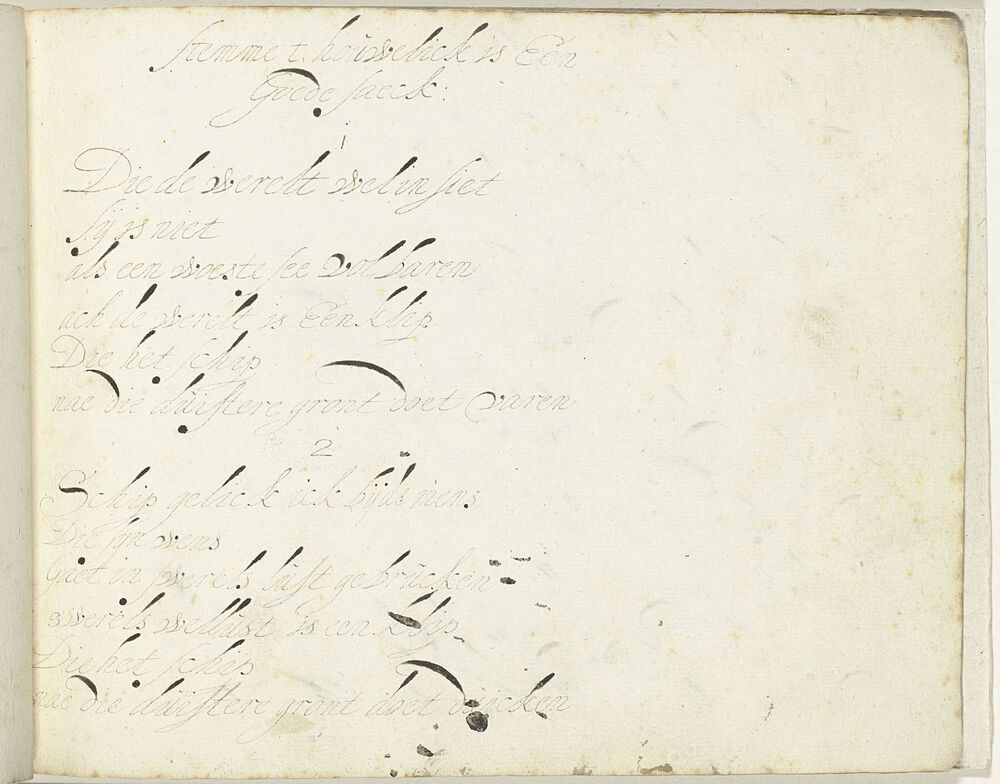 stemme t. houwelick is Een
Goede saeck:
1
Die de werelt wel in siet
sij is niet
als een woeste see vol baren
ach de werelt is Een klip
Die het schip
nae die duistere gront doet varen
2
Schip gelick ick bij de mens
Die sijn wens
Gaet in swerels lust gebrucken
swerels wellust is een klip
Die het schip
nae die duistere gront doet duicken